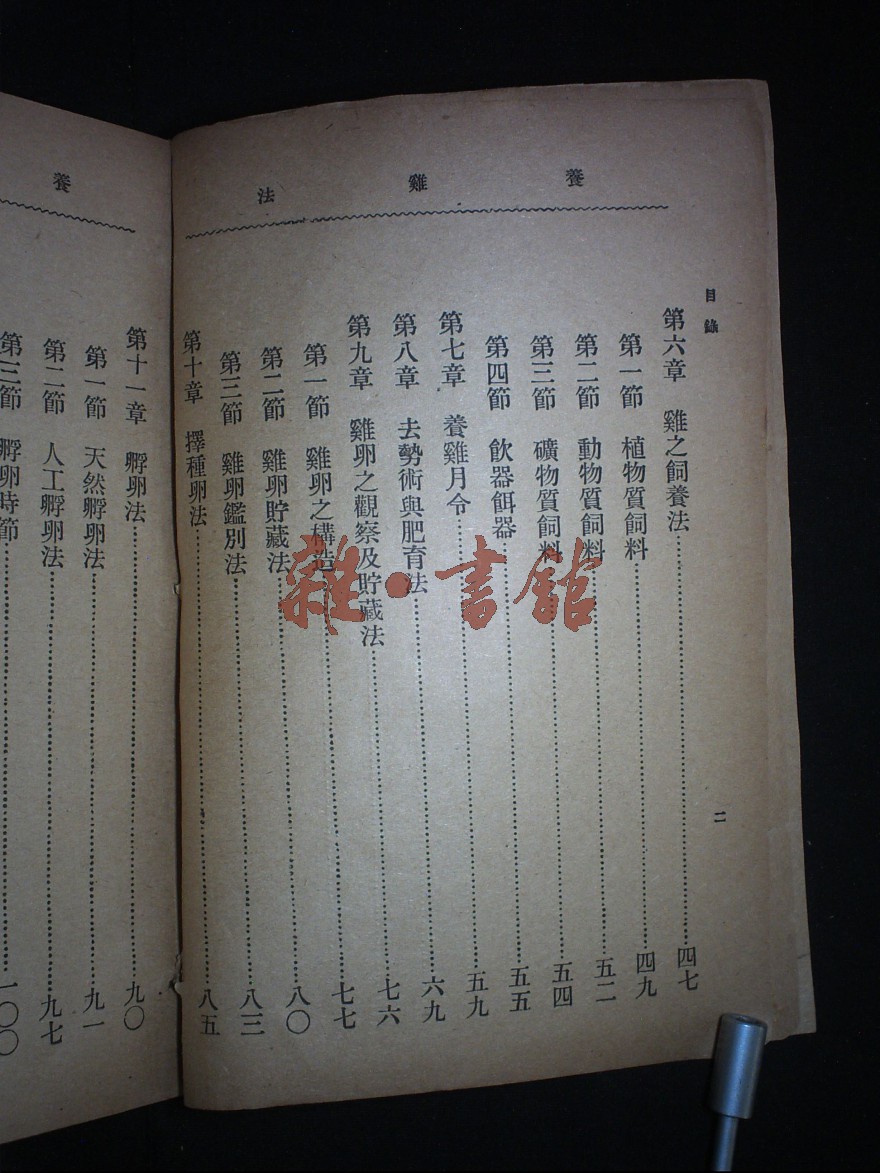 養雞法
目錄
二
第六章 雞之飼養法……四七
第一節 植物質飼料……四九
第二節 動物質飼料……五二
第三節 礦物質飼料……五四
第四節 飲器餌器……五五
第七章 養雞月令……五九
第八章 去勢術與肥育法……六九
第九章 雞卵之觀察及貯藏法……七六
第一節 雞卵之構造……七七
第二節 雞卵貯藏法……八〇
第三節 雞卵鑑別法……八三
第十章 擇種卵法……八五
養
第十一章 孵卵法……九〇
第一節 天然孵卵法……九一
第二節 人工孵卵法……九七
第三節 孵卵時節……一〇〇
雜·書館